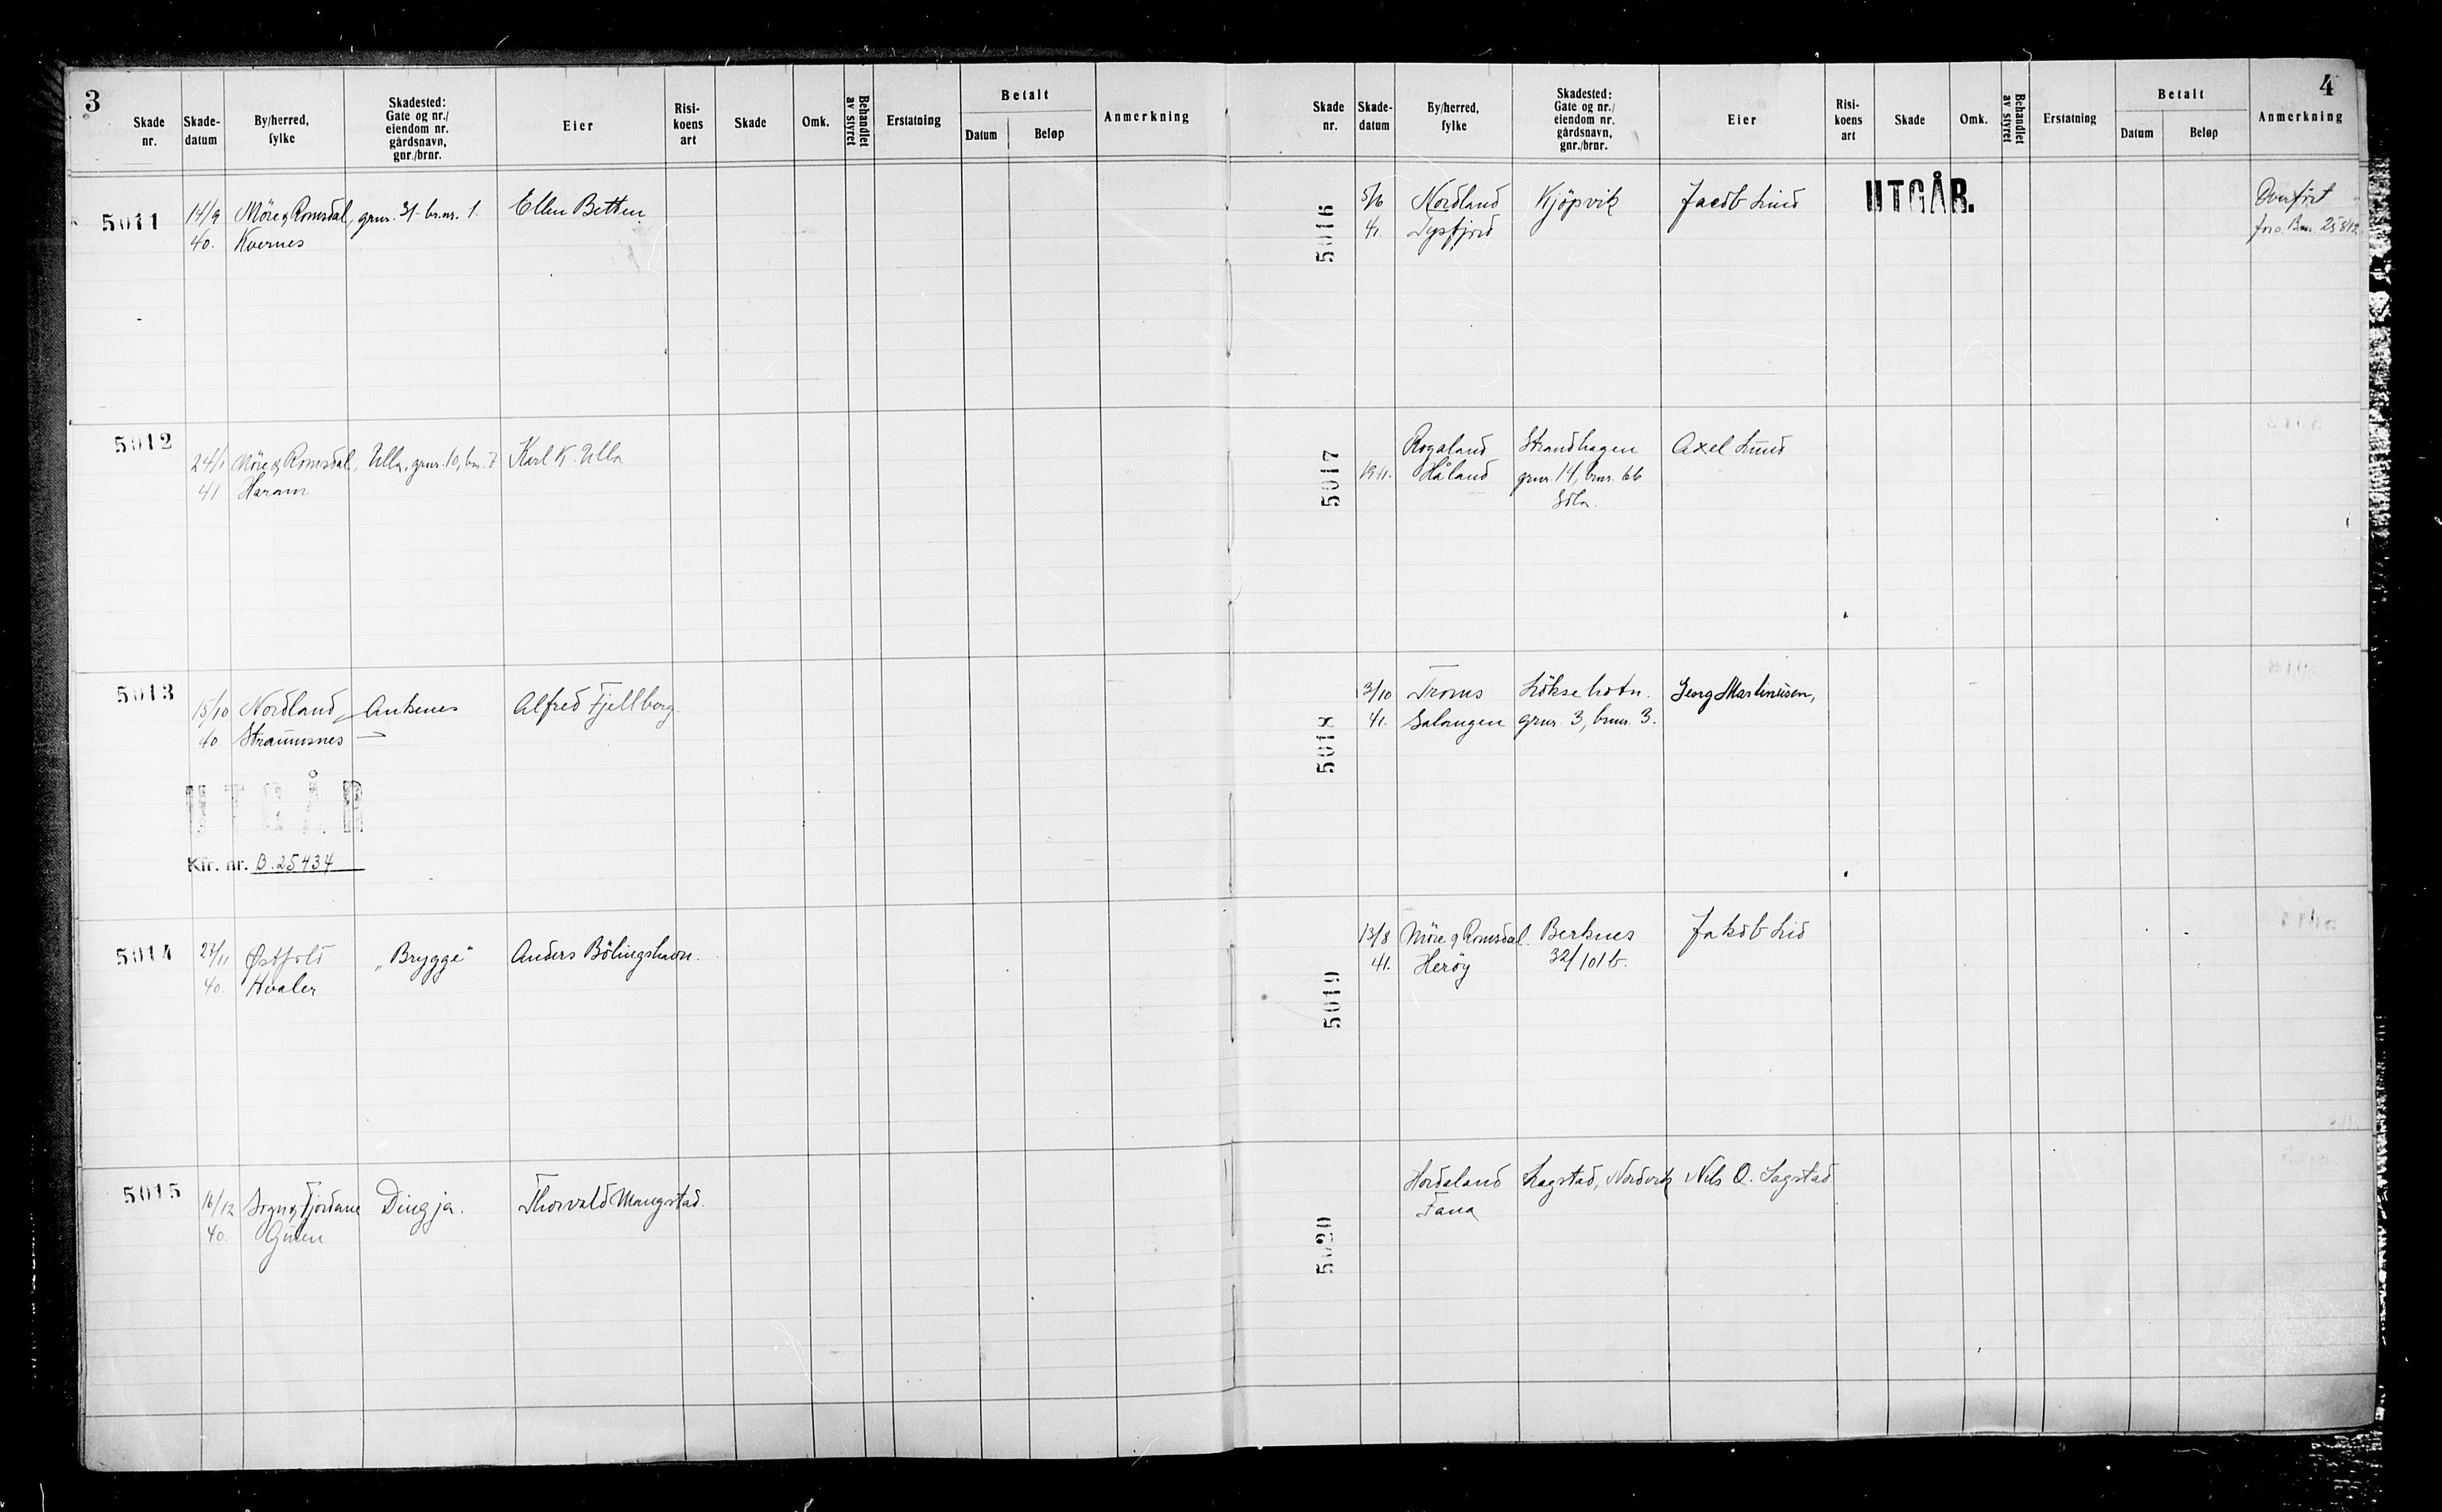 3
Skade nr.
Skade-datum
By/herred, fylke
Skadested: Gate og nr./ eiendom nr. gårdsnavn, gnr./brnr.
Eier
Risi-koens art
Skade
Omk.
Behandlet av styret
Erstatning
Betalt
Datum
Beløp
Anmerkning
5011
14/9 Möre & Romsdal, gnr. 31- br.nr. 1. Ellen Betten
40. Kvernes
5012
24/1 Möre & Romsdal, Ulla, gnr. 10, bnr. 7 Karl K. Ulla
41 Haram
5013
15/10 Nordland Ankenes Alfred Fjellborg
40. Straumsnes
UTGÅR
Kfr. nr. B.25434
5014
27/11 Østfold „Brygge" Anders Bölingshavn.
40. Hvaler
5015
16/12 Sogn & Fjordane Dingja. Thorvald Mangstad.
40. Gulen
4
Skade nr.
Skade-datum
By/herred, fylke
Skadested: Gate og nr./ eiendom nr. gårdsnavn, gnr./brnr.
Eier
Risi-koens art
Skade
Omk.
Behandlet av styret
Erstatning
Betalt
Datum
Beløp
Anmerkning
5016
5/6 Nordland Kjöpvik Jacob Lind UTGÅR. Overfört
41. Tysfjord
5017
Rogaland Strandhagen Axel Lund
1941. Håland gnr. 14, bnr. 66
Sola.
5018
3/10 Troms Löksebotn. Georg Martinussen,
41. Salangen gnr. 3, bnr. 3.
5019
13/8 Möre & Romsdal. Berknes Jakob Lid
41. Heröy 32/101b.
5020
Hordaland Lagstad, Nordvik Nils O. Lagstad
Fana